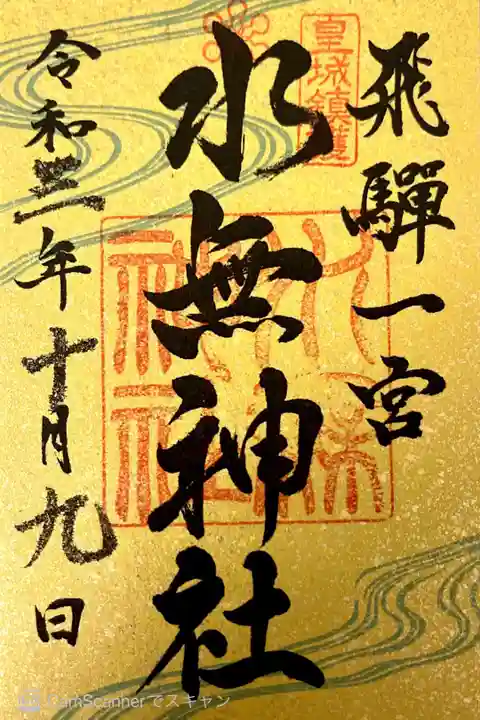 飛驒一宮
皇城鎮護
水無神社
水無神社
令和三年十月九日
CamScannerでスキャン